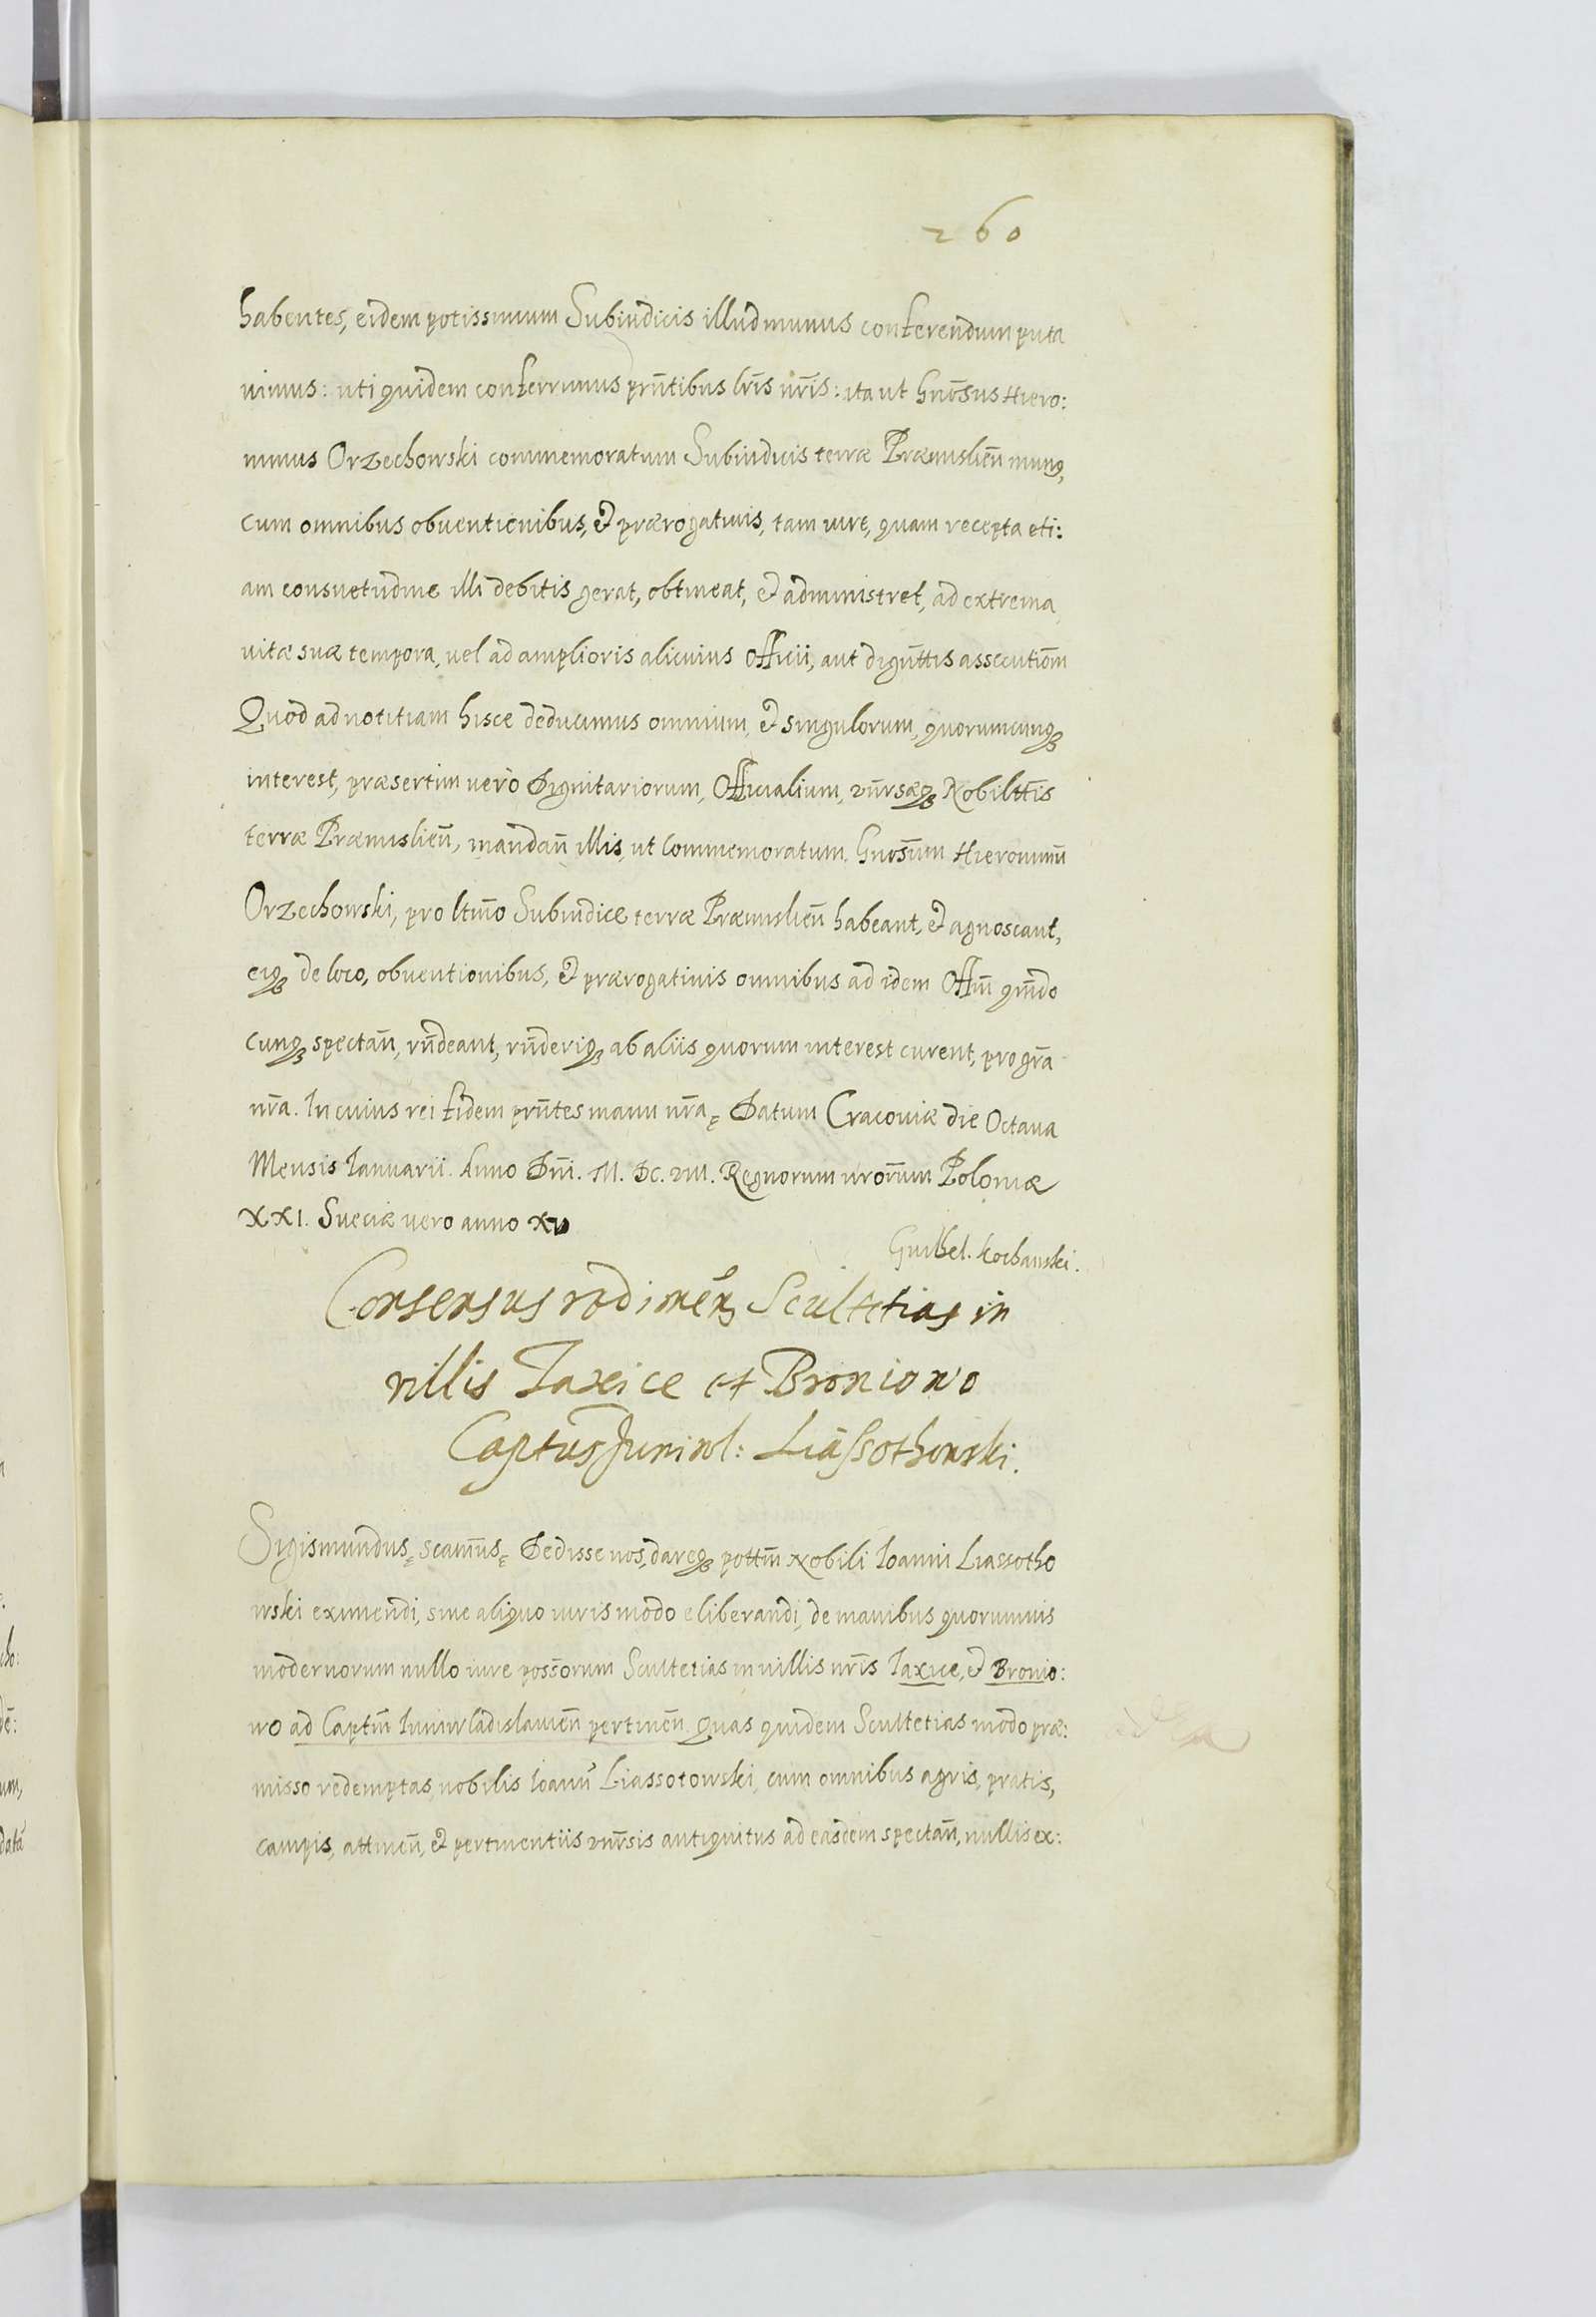 260
habentes, eidem potissimum Subiudicis illud munus conferendum puta
uimus: uti quidem conferrimus prñtibus lr̃is nr̃is: ita ut Gnõsus Hiero:
nimus Orzechowski commemoratum Subiudicis terræ Præmislieñ munꝯ,
cum omnibus obuentionibus, & prærogatiuis, tam iure, quam recepta eti:
am consuetudine illi debitis gerat, obtineat, & administret, ad extrema
uitæ suæ tempora, uel ad amplioris alicuius officii, aut digñttis assecutiõm
Quod ad notitiam hisce deducimus omnium, & singulorum, quorumcunqꝫ
interest, præsertim uero Dignitariorum, Officialium, vñrsæqꝫ Nobilttĩs
terræ Præmislieñ, mandañ illis, ut commemoratum Gnosũm Hieronimũ
Orzechowski, pro ltmõ Subiudice terræ Præmislieñ habeant, & agnoscant,
eiqꝫ de loco, obuentionibus, & prærogatiuis omnibus ad idem Offm̃ qm̃do
cunqꝫ spectañ, rñdeant, rñderiqꝫ ab aliis quorum interest curent, pro gr̃a
nr̃a. In cuius rei fidem prñtes manu nr̃a Datum Cracouiæ die Octaua
Mensis Ianuarii. Anno Dñi. M. DC. VIII. Regnorum nrorũm Poloniæ
XXI. Sueciæ uero anno XV
Guilhel. Kochanski.
Consensus redimeñ Scultetias in
villis Jaxice et Broniowo
Captus Juniwl: Liassothowski.
Sigismundus scam̃us Dedisse nos, dareqꝫ pottm̃ Nobili Ioanni Liassotho
wski eximendi, siue aliquo iuris modo eliberandi, de manibus quorumuis
modernorum nullo iure possõrum Scultetias in uillis nr̃is Iaxice, & Bronio:
wo ad Captm̃ Iuniwladislauieñ pertineñ. Quas quidem Scultetias modo præ:
misso redemptas, nobilis Ioanñ Liassotowski, cum omnibus agris, pratis,
campis, attineñ, & pertinentiis vnr̃sis antiquitus ad easdem spectañ, nullis ex: